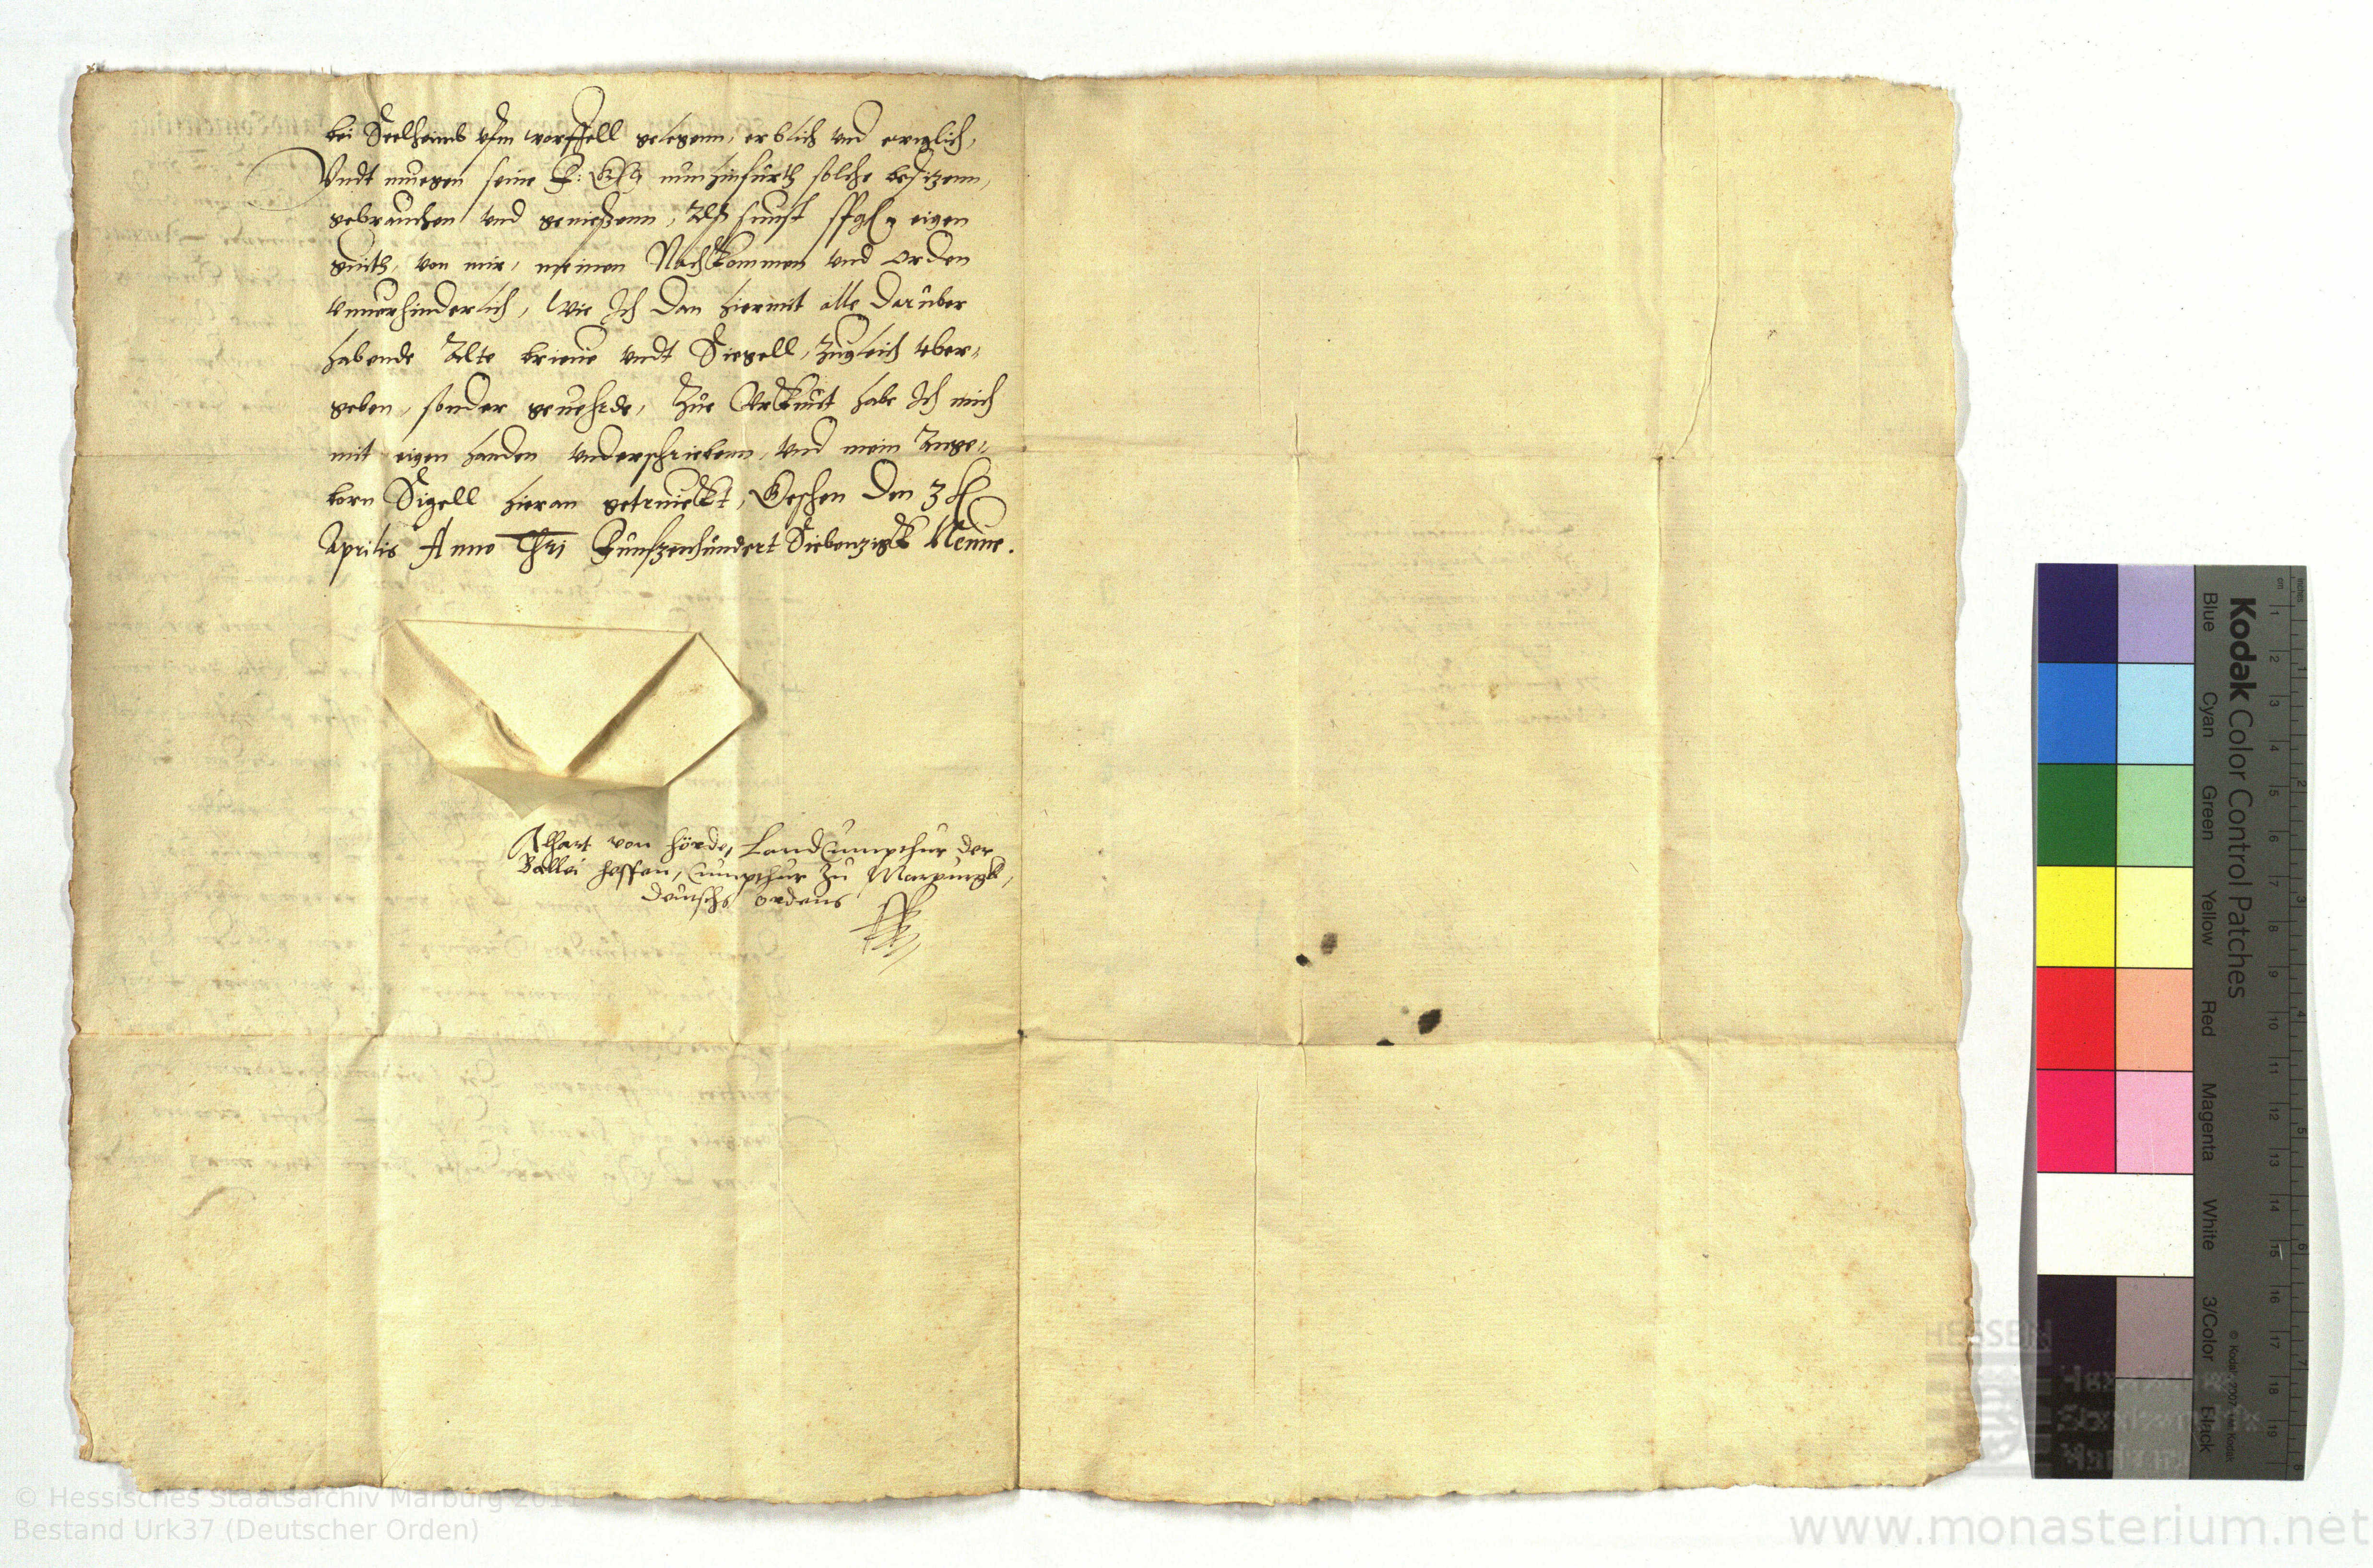 bei Seelheimb vfm worffell gelegenn, erblich vnd ewiglich,
Vndt muegen seine F: nunhinfürth solche besitzenn,
gebrauchen vnd genießenn, Alß sunst eigen
guith, von mir, meinen Nachkommen vnd orden
vnuerhinderlich, Wie Ich dan hiermit alle darüber
habende Alte brieue vndt Siegell, zugleich vber-
geben, sonder geuehrde, Zur Vrkunt habe Ich mich
mit eigen handen vnderschriebenn, vnd mein Ange-
born Sigell hieran getruickt, Geschen den 3
Aprilis Anno Chri Fünfzenhundert Siebenzigk Neune.
Alhart von Hörde, LandCumpthur der
Ballei Hessen, Cumpthur zu Marpurgk,
deutschs ordens
Kodak Color Control Patches
Blue Cyan Green Yellow Red Magenta White 3/Color Black
© Kodak, 2007
inches
cm
1 2 3 4 5 6 7 8 9 10 11 12 13 14 15 16 17 18 19
1 2 3 4 5 6 7 8
HESSEN
© Hessisches Staatsarchiv Marburg 2011
Bestand Urk37 (Deutscher Orden)
www.monasterium.net